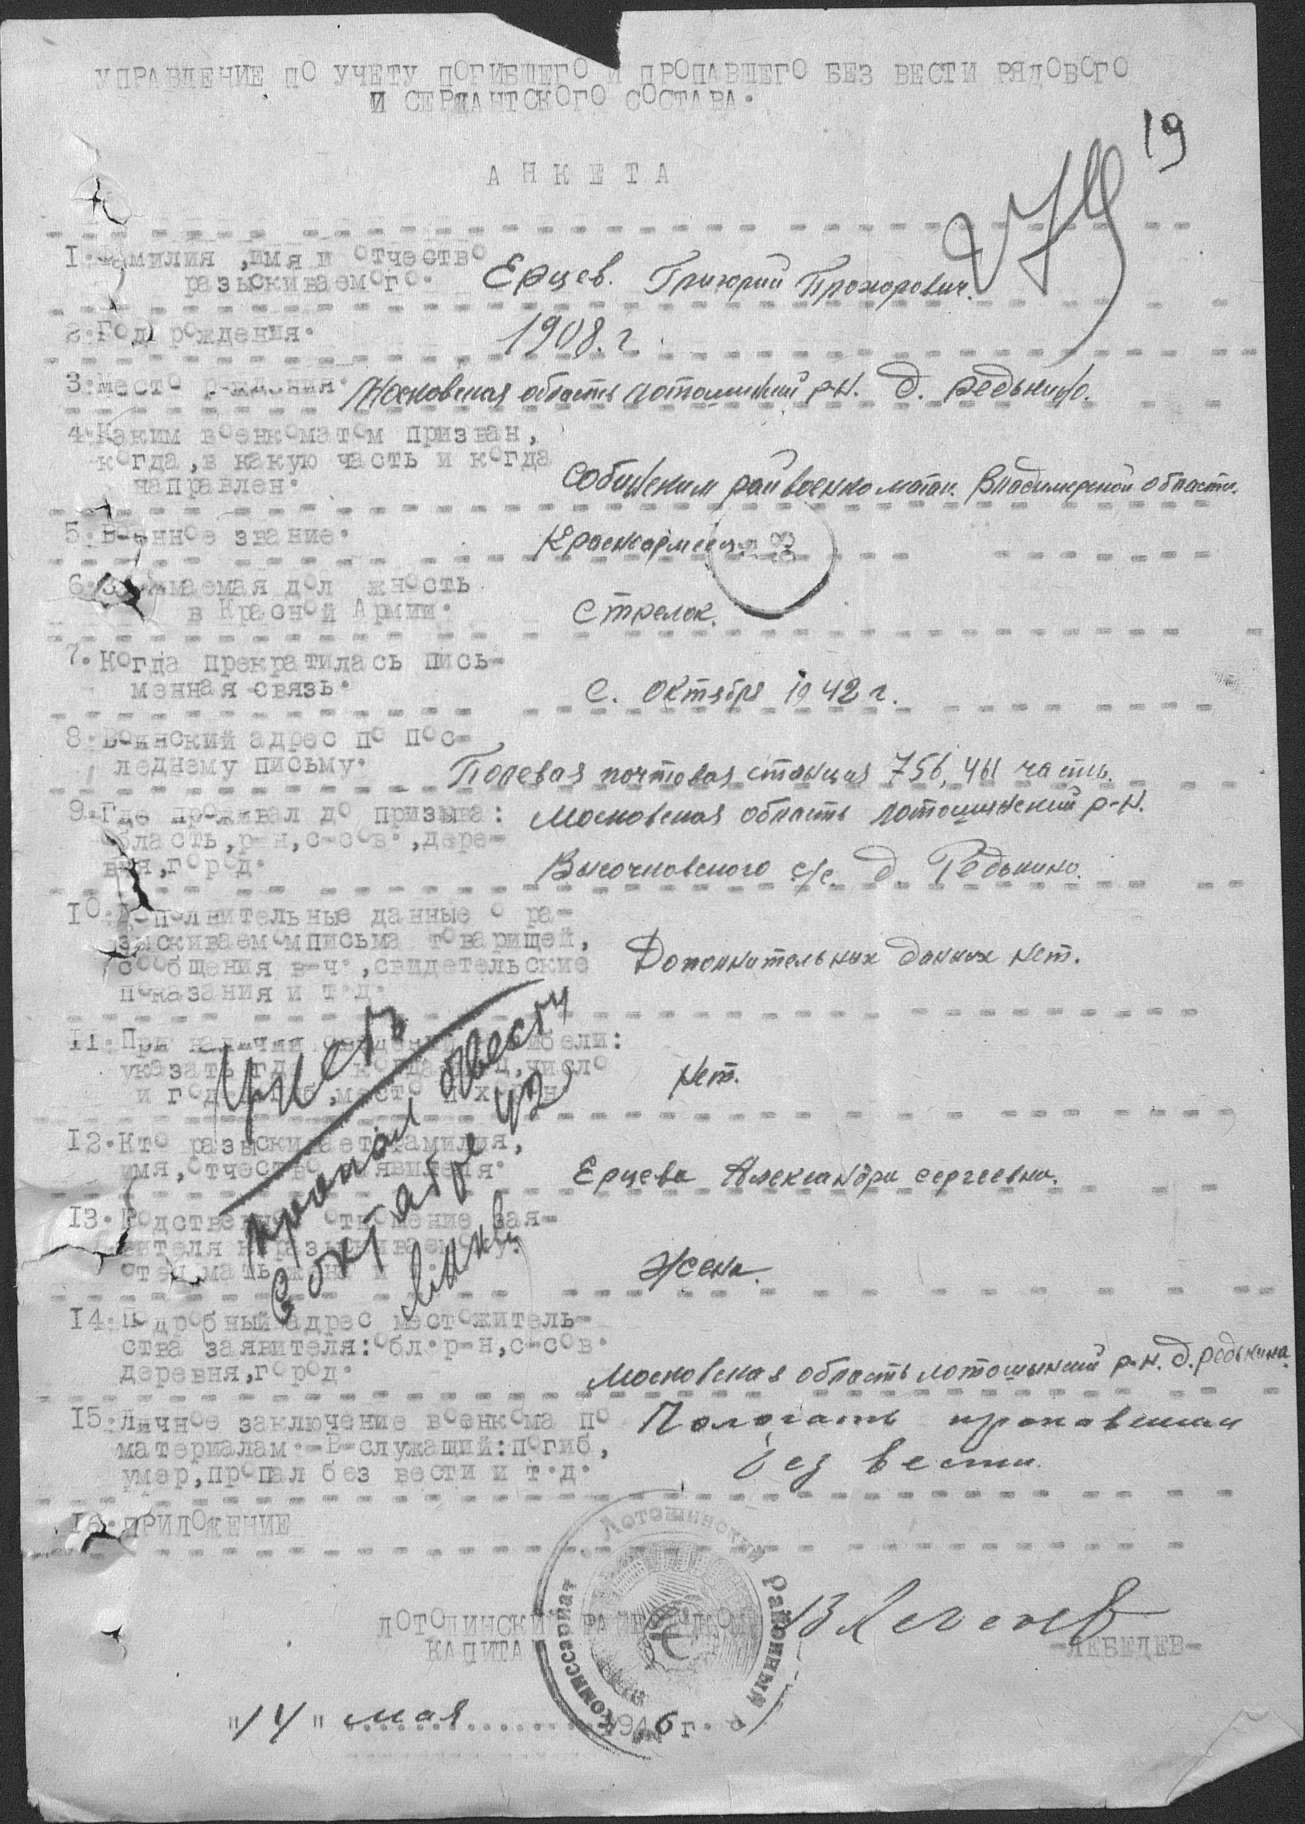 УПРАВЛЕНИЕ ПО УЧЕТУ ПОГИБШЕГО И ПРОПАВШЕГО БЕЗ ВЕСТИ РЯДОВОГО
И СЕРЖАНТСКОГО СОСТАВА.
19
АНКЕТА
1. Фамилия ,имя и отчество
разыскиваемого. Ерцев. Григорий Прохорович.
2. Год рождения. 1908. г.
3. Место рождения. Московская область лотошинский р-н. д. Редькино.
4. Каким военкоматом призван,
когда, в какую часть и когда
направлен. Собинским райвоенкоматом. Владимирской области.
5. Военное звание. Красноармеец
6. Занимаемая дол жность
в Красной Армии. Стрелок.
7. Когда прекратилась пись-
менная связь. С. октября 1942 г.
8. Воинский адрес по пос-
леднему письму. Полевая почтовая станция 756, 461 часть.
9. Где проживал до призыва: Московская область лотошинский р-н.
область, р-н, с-сов., дере-
вня, город. Высочковского с/с. д. Редькино.
10. Дополнительные данные о ра-
зыскиваемом письма товарищей,
сообщения в-ч., свидетельские Дополнительных данных нет.
показания и т.д.
11. При наличии сведений о гибели:
указать где, когда, число
и год, место Нет.
Учесть
пропал б/вести
в октябре 42
12. Кто разыскивает фамилия,
имя, отчество заявителя. Ерцева Александра Сергеевна.
13. Родственное отношение зая-
вителя к разыскиваемому:
отец мать жена и Жена.
14. Подробный адрес местожитель-
ства заявителя: обл. р-н, с-сов.
деревня, город. Московская область лотошинский р-н. д. Редькина.
15. Личное заключение военкома по Пологать пропавшим
материалам.-В-служащий: погиб, без вести.
умер, пропал без вести и т.д.
16. ПРИЛОЖЕНИЕ
Лотошинский Районный
Комиссариат
ЛОТОШИНСКИЙ РАЙВОЕНКОМ
КАПИТАН -ЛЕБЕДЕВ-
"14" мая 1946 г.